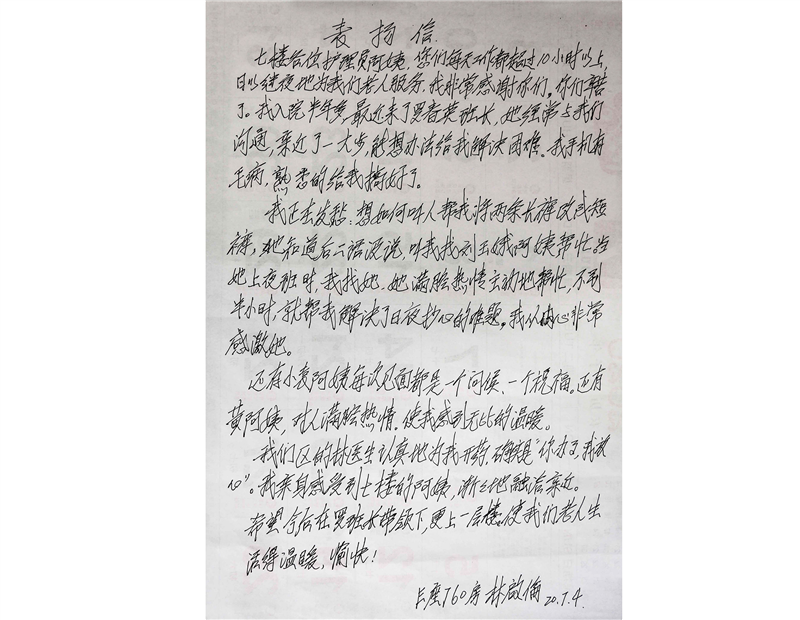 表扬信
七楼各位护理员阿姨,您们每天工作都超过10小时以上,
日以继夜地为我们老人服务,我非常感谢你们。你们辛苦
了。我入院半年多,最近来了罗春英班长,她经常与我们
沟通,亲近了一大步,能想办法给我解决困难。我手机有
毛病,熟悉的给我搞好了。
我正在发愁:想如何叫人帮我将两条长裤改成短
裤,她知道后二话没说,叫我找刘玉娥阿姨帮忙。当
她上夜班时,我找她,她满脸热情主动地帮忙,不到
半小时,就帮我解决了日夜抄心的难题。我从内心非常
感激她。
还有小袁阿姨每次见面都是一个问候、一个祝福。还有
黄阿姨,对人满脸热情。使我感到无比的温暖。
我们区的林医生认真地为我开药,确实是"你办了,我放
心"。我亲身感受到七楼的阿姨,渐渐地融洽亲近。
希望今后在罗班长带领下,更上一层楼,使我们老人生
活得温暖,愉快!
760房 林啟倫 20.7.4.